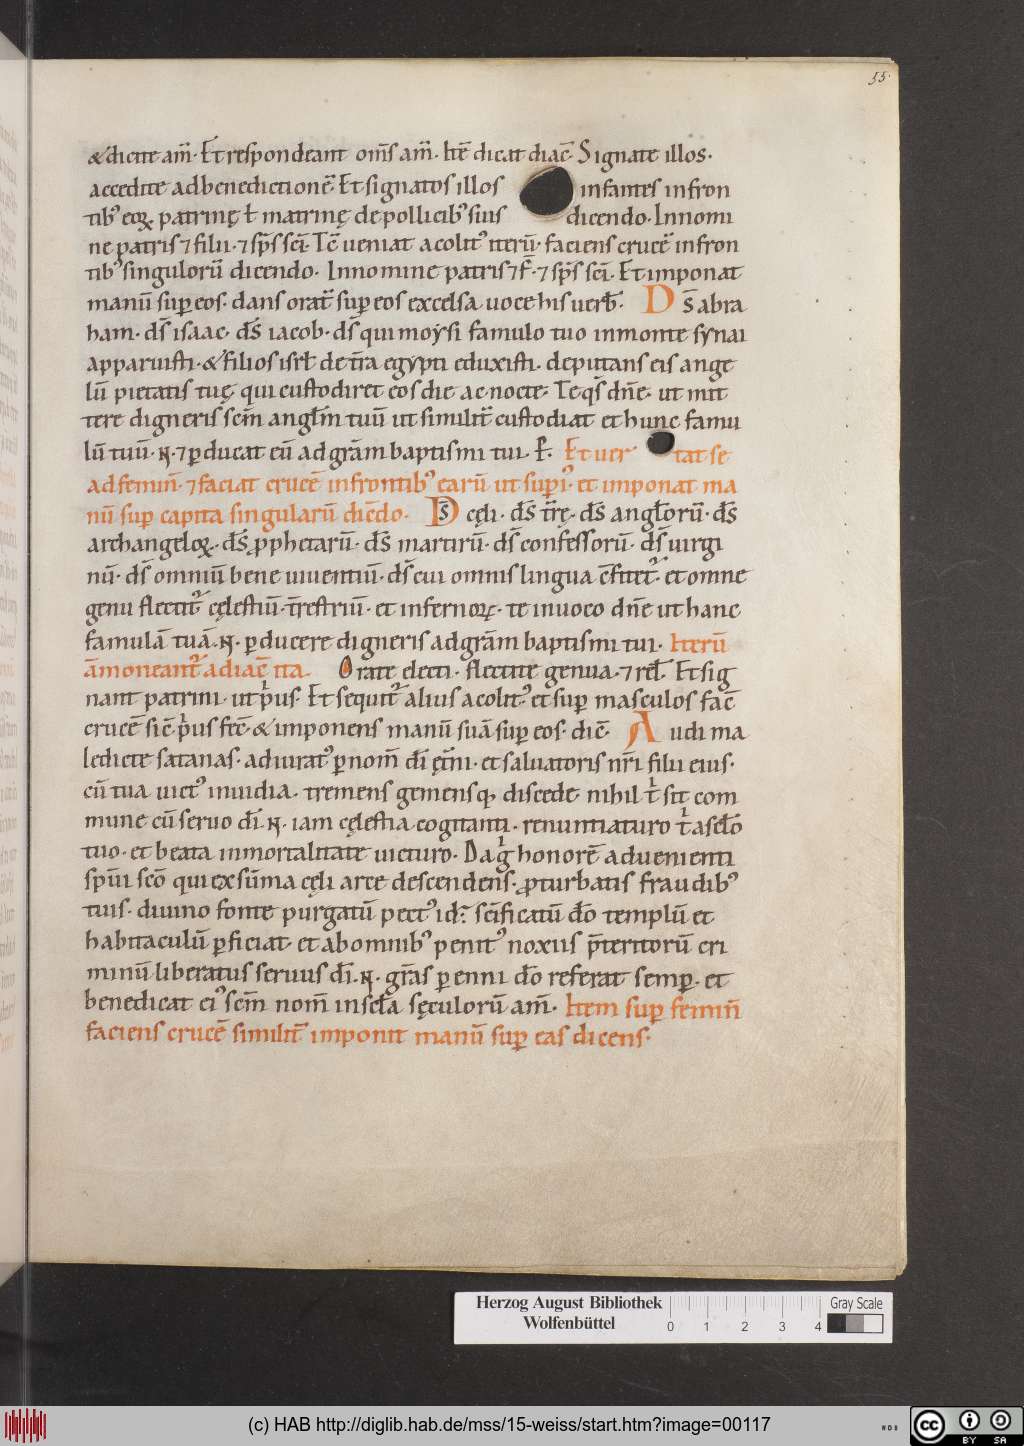 55.
& dicite am̄. Et respondeant om̄s am̄. Itē dicat diac̄. Signate illos.
accedite ad benedictionē. Et signatos illos infantes in fron
tib᾽ eoꝝ patrinę ł matrinę de pollicib᾽ suis dicendo. In nomi
ne patris ⁊ filii. ⁊ sp̄s sc̄i. Tc̄ ueniat acolit᾽ iterū. faciens crucē in fron
tib᾽ singulorū dicendo. In nomine patris ⁊ f̄. ⁊ sp̄s sc̄i. Et imponat
manū suꝑ eos. dans orat̄ suꝑ eos excelsa uoce his uerb̄. D s̄ abra
ham. ds̄ isaac. ds̄ iacob. ds̄ qui moẏsi famulo tuo in monte sẏnai
apparuisti. & filios isrł de tr̄a egypti eduxisti. deputans eis ange
lū pietatis tuę. qui custodiret eos die ac nocte. Te qs̄ dn̄e. ut mit
tere digneris sc̄m angłm tuū ut similit̄ custodiat et hunc famu
lū tuū. N. ⁊ ꝑducat eū ad grām baptismi tui. P̄. Et uer tat se
ad femin̄. ⁊ faciat crucē in frontib᾽ earū ut supi᾽. et imponat ma
nū suꝑ capita singularū dicēdo. D s̄ cęli. ds̄ tr̄ę. ds̄ angłorū. ds̄
archangeloꝝ. ds̄ ꝓphetarū. ds̄ martirū. ds̄ confessorū. ds̄ uirgi
nū. ds̄ omniū bene uiuentiū. ds̄ cui omnis lingua c̄fitet᾽. et omne
genu flectit᾽ cęlestiū. tr̄estriū. et infernoꝝ. te inuoco dn̄e ut hanc
famulā tuā. N. ꝑducere digneris ad grām baptismi tui. Iterū
āmoneant᾽ a diac̄ ita. Orate electi. flectite genua. ⁊ rel̄. Et sig
nant patrini. ut p᾽us. Et sequit᾽ alius acolit᾽ et suꝑ masculos fac̄
crucē sic̄ p᾽us fec̄. & imponens manū suā suꝑ eos. dic̄. A udi ma
ledicte satanas. adiurat᾽ ꝑ nom̄ dī ęt̄ni. et saluatoris nr̄i filii eius.
cū tua uict᾽ inuidia. tremens gemensq; discede nihil t᾽ sit com
mune cū seruo dī. N. iam cęlestia cogitanti. renuntiaturo t᾽ a sc̄lo
tuo. et beata inmortalitate uicturo. Da g᾽ honorē aduenienti
spūi sc̄o qui ex sūma cęli arce descendens. ꝓturbatis fraudib᾽
tuis. diuino fonte purgatū pect᾽ id. sc̄ificatū dō templū et
habitaculū ꝑficiat. et ab omnib᾽ penit᾽ noxiis p̄teritorū cri
minū liberatus seruus dī. N. grās ꝑenni dō referat semꝑ. et
benedicat ei᾽ sc̄m nom̄ in sc̄la sęculorū am̄. Item suꝑ femin̄
faciens crucē similit̄ imponit manū suꝑ eas dicens.
Herzog August Bibliothek
Wolfenbüttel
0 1 2 3 4
Gray Scale
(c) HAB http://diglib.hab.de/mss/15-weiss/start.htm?image=00117
cc BY SA